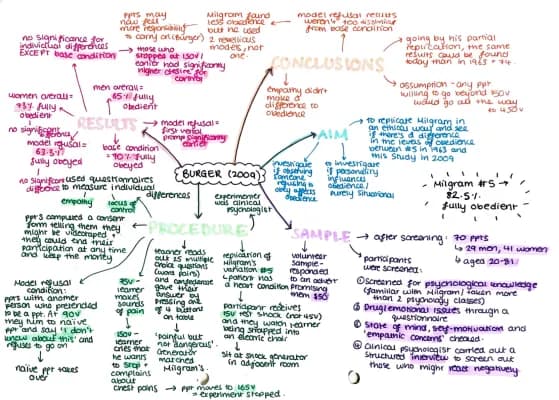 BURGER (2009)
CONCLUSIONS
ppts may
now feel
more responsibility
to carry on (Burger)
Milgram found
less obedience
but he used
2 rebellious
models, not
one.
model refusal results
weren't too dissimilar
from base condition
going by his partial
replication, the same
results could be found
today than in 1963 + 74.
assumption - any ppt
willing to go beyond 150v
would go all the way
to 450v
empathy didn't
make a
difference to
obedience
AIM
to replicate Milgram in
an ethical way and see
if there's a difference
in the levels of obedience
between #5 in 1963 and
this study in 2009
investigate
if observing
someone
refusing to
obey affects
obedience
to investigate
if personality
influences
obedience/
purely situational
Milgram #5 →
82.5%
fully obedient
RESULTS
no significance for
individual differences
EXCEPT base condition
those who
stopped at 150v/
earlier had significantly
higher desire for
control
women overall=
73% fully
obedient
no significant
difference
men overall=
65% fully
obedient
model refusal=
63.3%
fully obeyed
no significant
difference
base
condition
= 70% fully
obeyed
model refusal=
first verbal
prompt significantly
earlier
PROCEDURE
used questionnaires
to measure individual
differences
empathy
locus of
control
experimenter
was clinical
psychologist
ppts completed a consent
form telling them they
might be videotaped +
they could end their
participation at any time
and keep the money
Model refusal
condition:
ppts within another
person who pretended
to be a ppt. At 90v
they turn to naive
ppt and say 'I don't
know about this' and
refuses to go on
naive ppt takes
over
75v -
learner
makes
sounds
of pain
150v -
learner
cries that
he wants
to stop +
complains
about
chest pains
→ ppt moves to 165v
= experiment stopped.
teacher reads
out 25 multiple
choice questions
(word pairs)
and confederate
gave their
answer by
pressing one
of 4 buttons
on table
'painful but
not dangerous'.
Generator
matched
Milgram's.
replication
of Milgram's
variation #5
(patient has
a heart condition)
participant receives
15v test shock (not 45v)
and they watch learner
being strapped into
an electric chair
sit at shock generator
in adjacent room
SAMPLE
volunteer
sample -
responded
to an advert
promising
them $50
after screening: 70 ppts
29 men, 41 women
aged 20-81
participants
were screened:
① Screened for psychological knowledge
(familiar with Milgram/taken more
than 2 psychology classes)
② Drug/emotional issues through a
questionnaire
③ State of mind, self-motivation and
'empathic concerns' checked.
④ Clinical psychologist carried out a
structured interview to screen out
those who might react negatively.